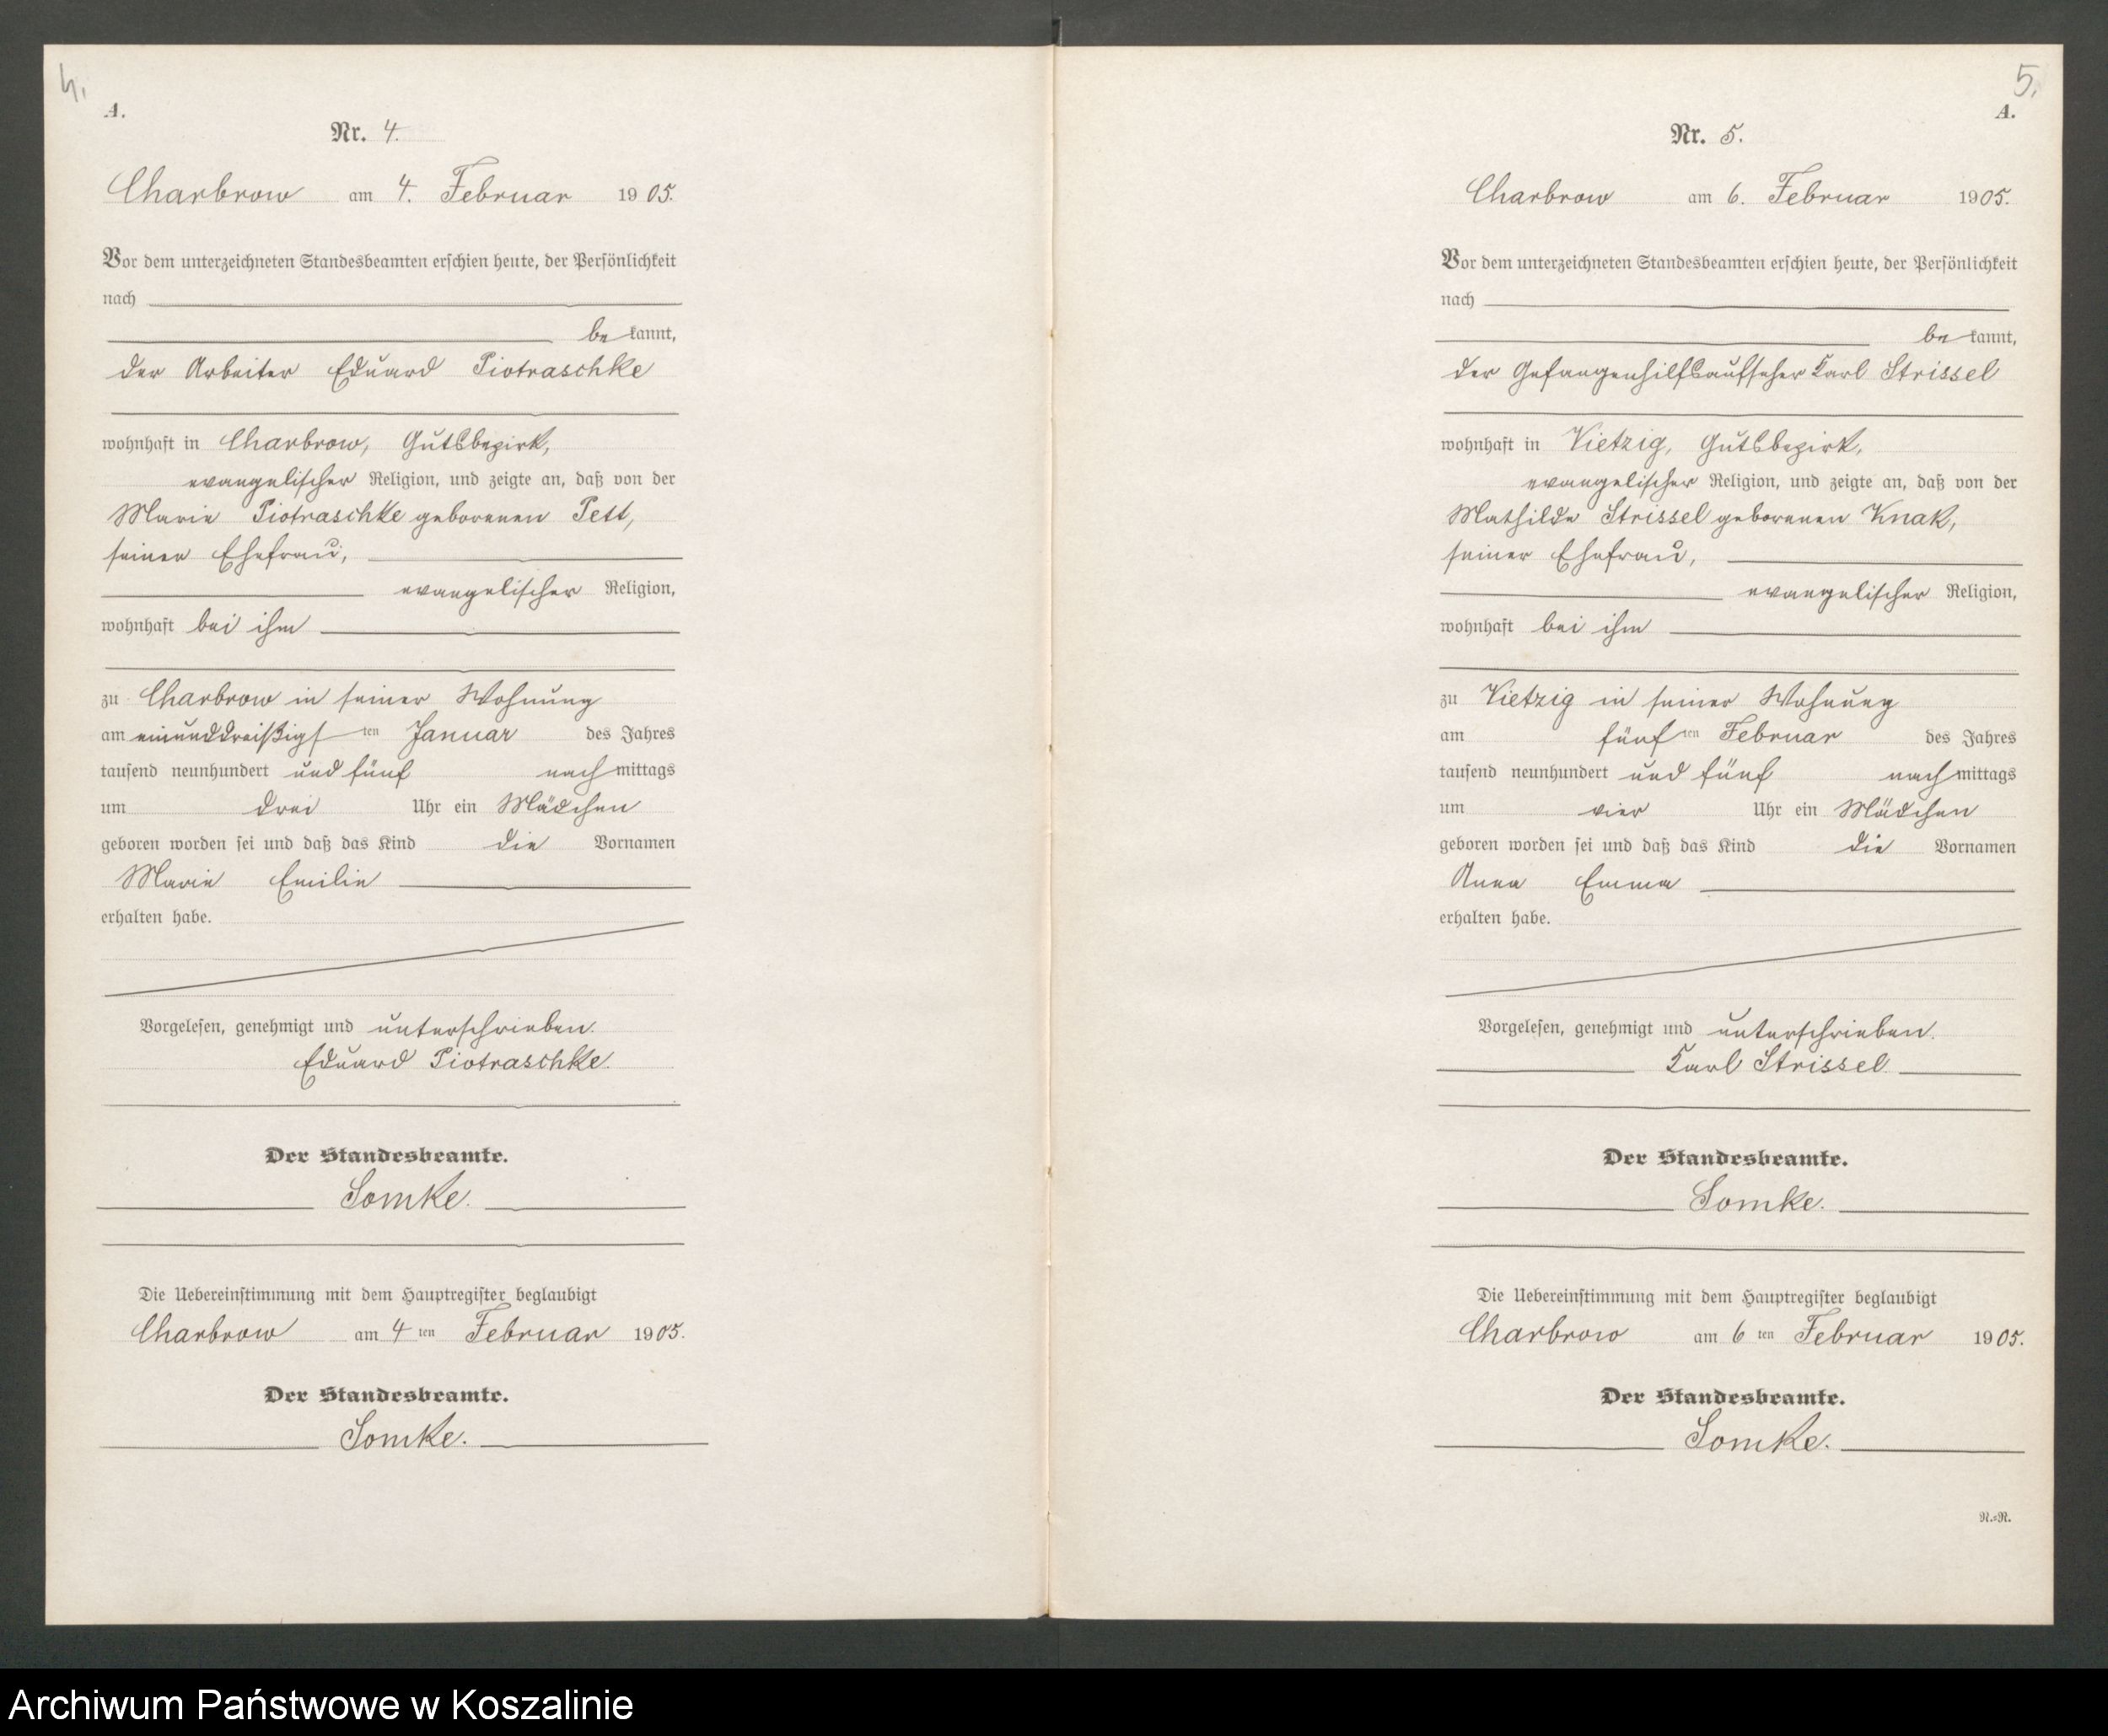 4.
A.
Nr. 4.
Charbrow am 4. Februar 1905.
Vor dem unterzeichneten Standesbeamten erschien heute, der Persönlichkeit
nach
be kannt,
der Arbeiter Eduard Piotraschke
wohnhaft in Charbrow, Gutsbezirk,
evangelischer Religion, und zeigte an, daß von der
Marie Piotraschke geborenen Pett,
seiner Ehefrau,
evangelischer Religion,
wohnhaft bei ihm
zu Charbrow in seiner Wohnung
am einunddreißigsten Januar des Jahres
tausend neunhundert und fünf nachmittags
um drei Uhr ein Mädchen
geboren worden sei und daß das Kind die Vornamen
Marie Emilie
erhalten habe.
Vorgelesen, genehmigt und unterschrieben.
Eduard Piotraschke.
Der Standesbeamte.
Somke.
Die Uebereinstimmung mit dem Hauptregister beglaubigt
Charbrow am 4 ten Februar 1905.
Der Standesbeamte.
Somke.
5.
A.
Nr. 5.
Charbrow am 6. Februar 1905.
Vor dem unterzeichneten Standesbeamten erschien heute, der Persönlichkeit
nach
be kannt,
der Gefangenhilfsaufseher Karl Strissel
wohnhaft in Vietzig, Gutsbezirk,
evangelischer Religion, und zeigte an, daß von der
Mathilde Strissel geborenen Knak,
seiner Ehefrau,
evangelischer Religion,
wohnhaft bei ihm
zu Vietzig in seiner Wohnung
am fünften Februar des Jahres
tausend neunhundert und fünf nachmittags
um vier Uhr ein Mädchen
geboren worden sei und daß das Kind die Vornamen
Anna Emma
erhalten habe.
Vorgelesen, genehmigt und unterschrieben.
Karl Strissel
Der Standesbeamte.
Somke.
Die Uebereinstimmung mit dem Hauptregister beglaubigt
Charbrow am 6 ten Februar 1905.
Der Standesbeamte.
Somke.
N.=R.
Archiwum Państwowe w Koszalinie